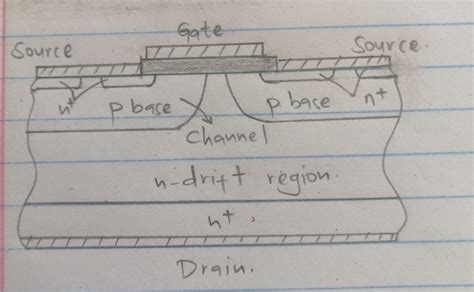 Gate
Source
Source.
n+
p base
p base
n+
Channel
n-drift region.
n+
Drain.